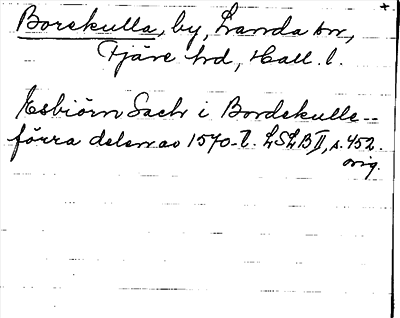 Borskulla, by, Landa sn,
Fjäre hd, Hall. l.
Esbiörn Sachr i Bordskulle --
förra delen av 1570-t. LSLB II, s. 452.
orig.